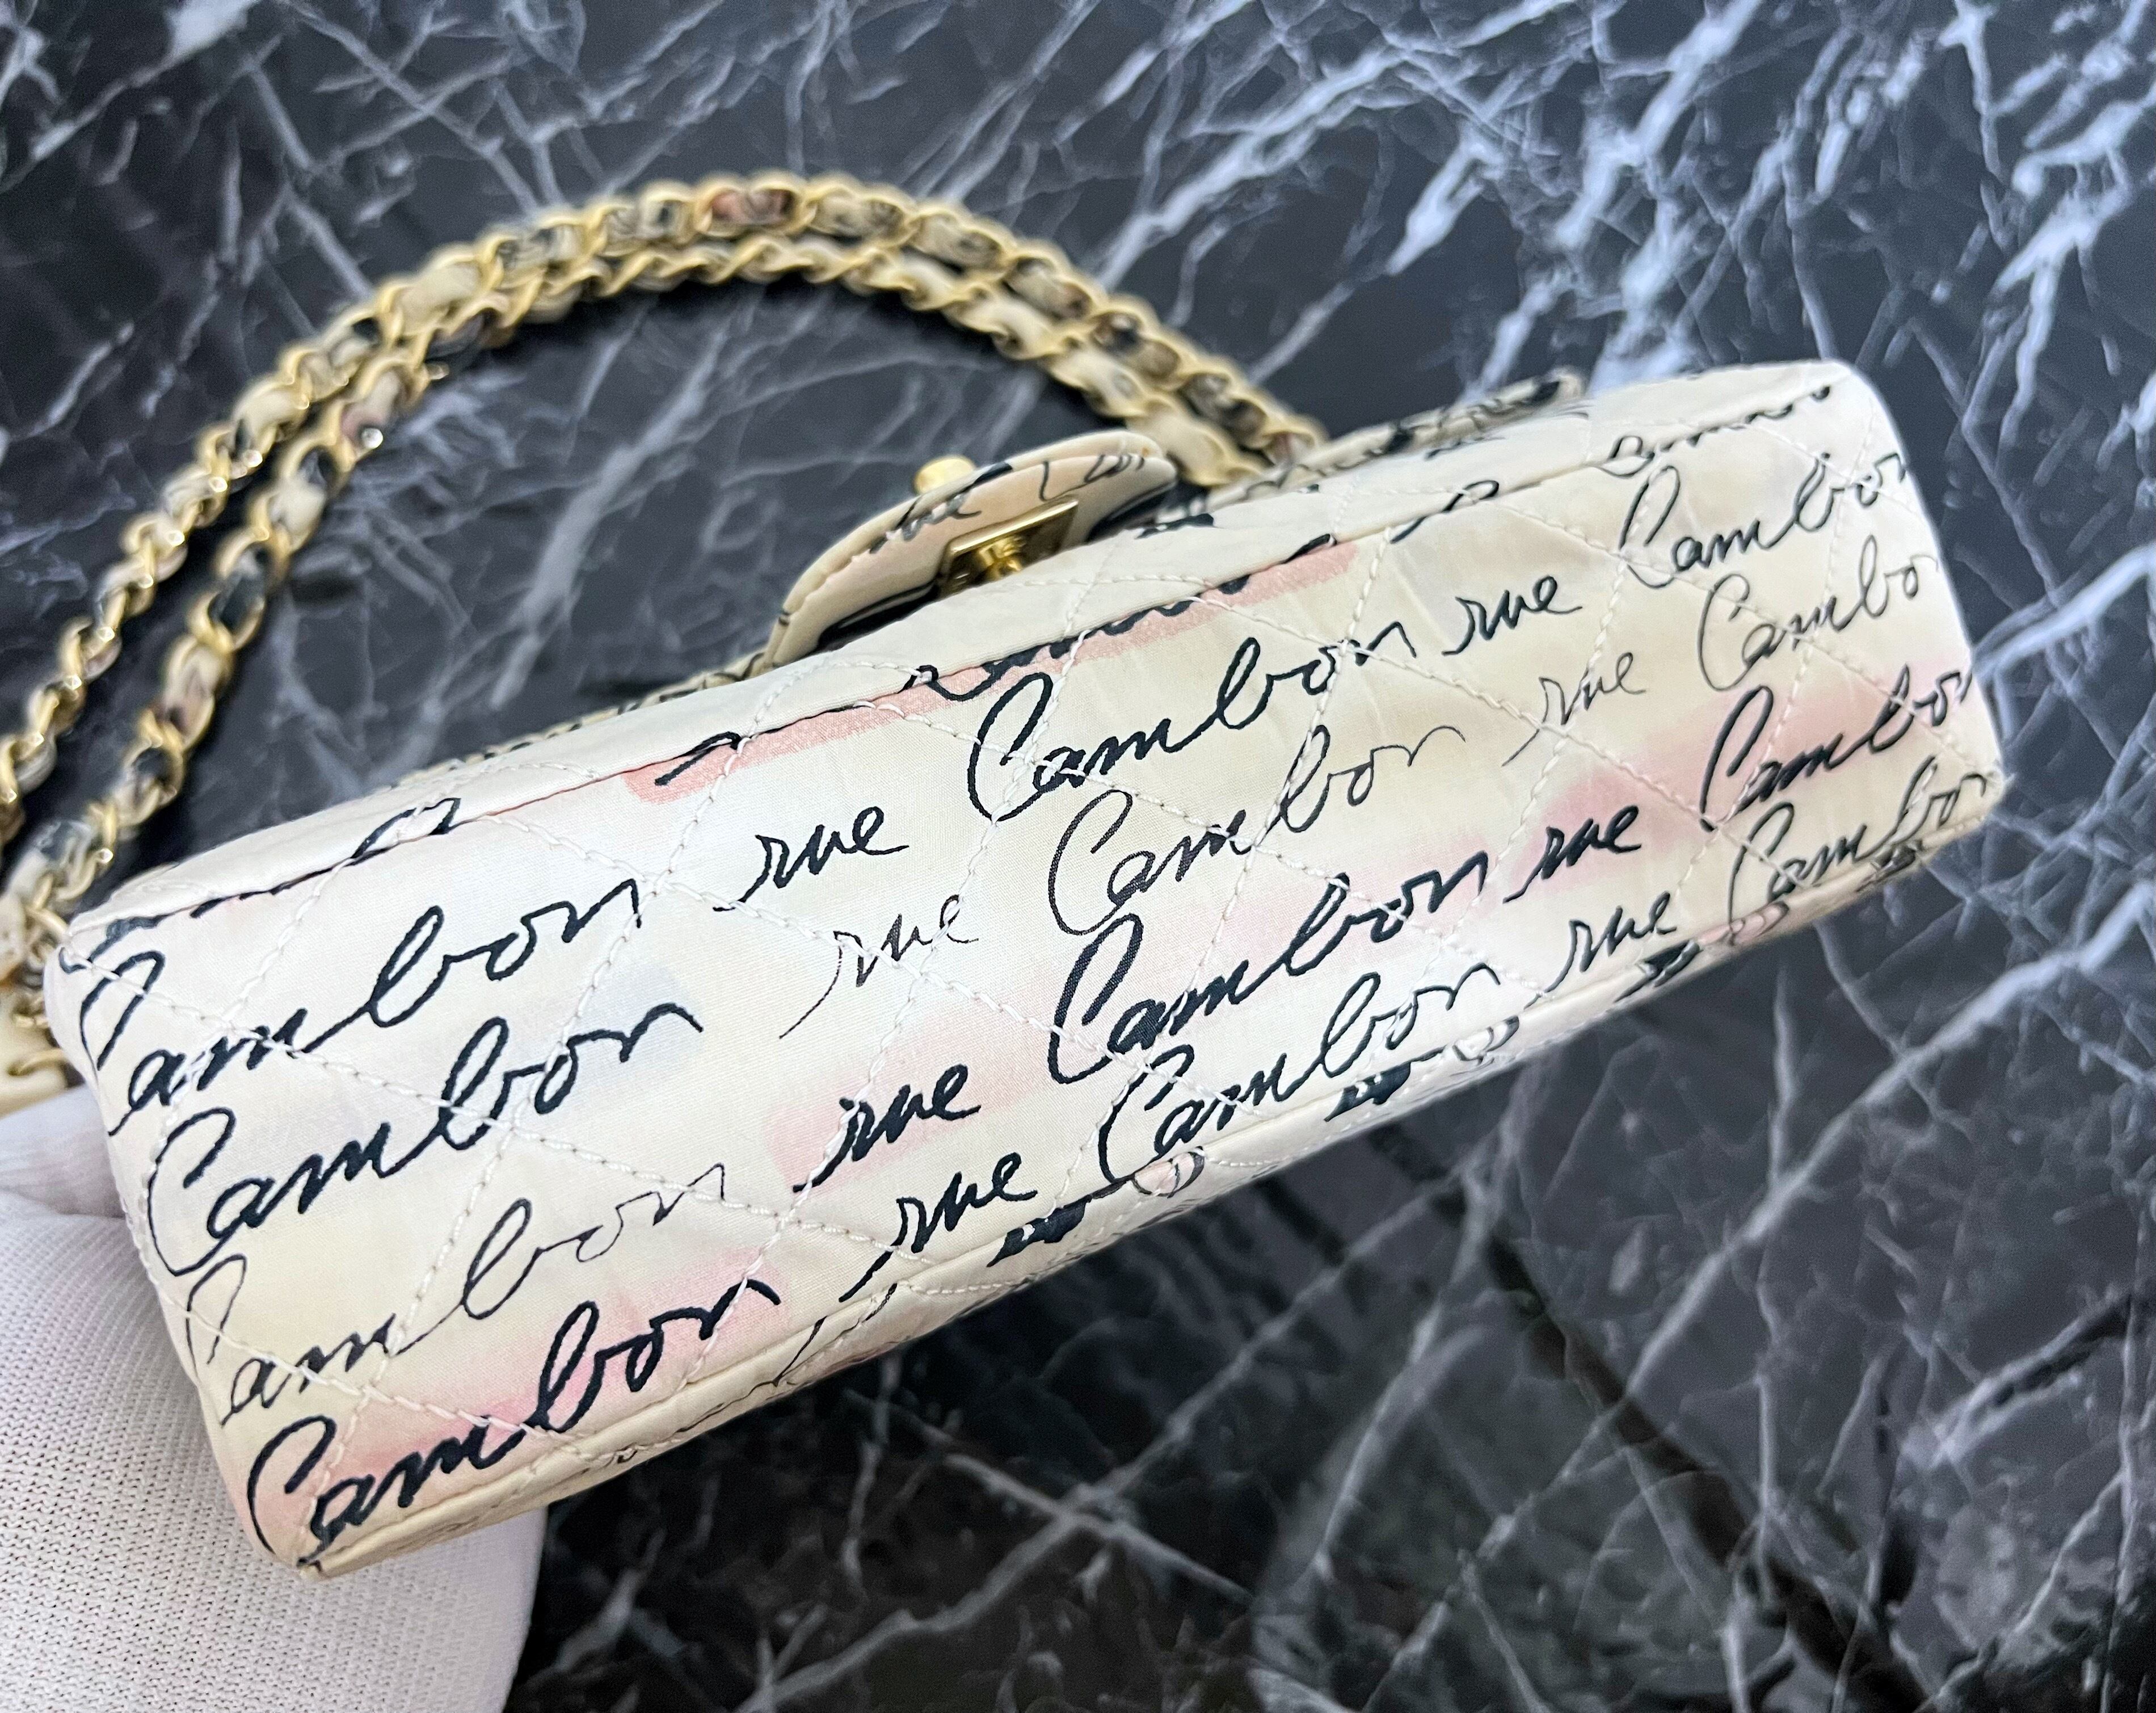 rue
Cambon rue Cambon rue Cambon
Cambon rue Cambon rue Cambo
Cambon rue Cambon rue Cambon
Cambon rue Cambon rue Cambon